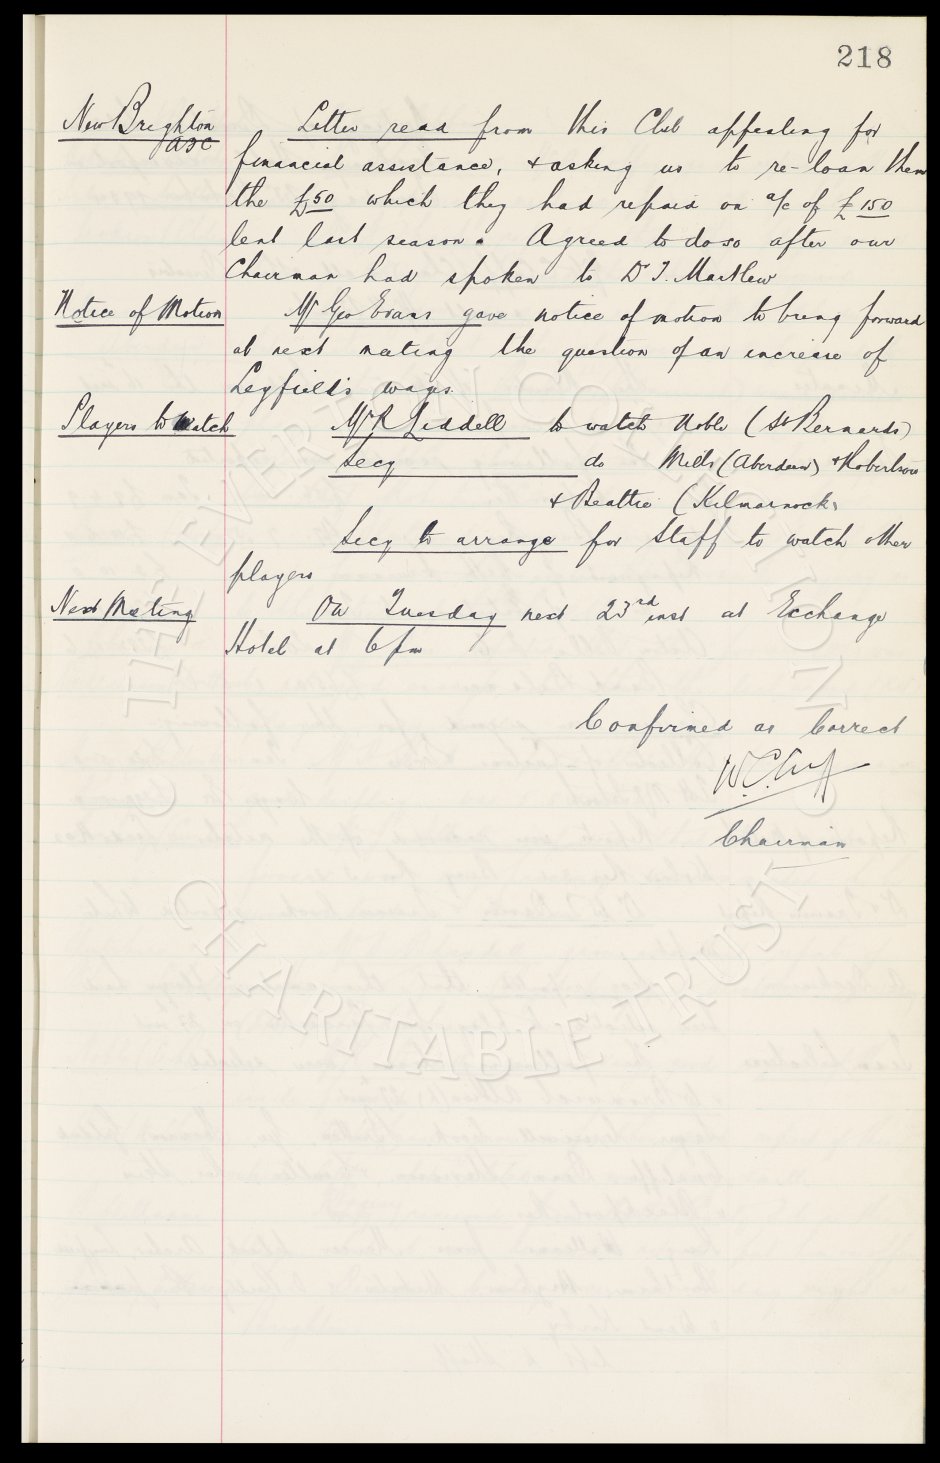 218
New Brighton
AFC
Letter read from this Club appealing for
financial assistance, & asking us to re-loan them
the £50 which they had repaid on a/c of £150
lent last season. Agreed to do so after our
Chairman had spoken to Dr T. Martlew
Notice of Motion
Mr Geo Evans gave notice of motion to bring forward
at next meeting the question of an increase of
Leyfield's wages.
Players to Watch
Mr R Liddell to watch Noble (St Bernards)
Secy do Mills (Aberdeen) & Robertson
& Beattie (Kilmarnock)
Secy to arrange for Staff to watch other
players
Next Meeting
On Tuesday next 23rd inst at Exchange
Hotel at 6 pm
Confirmed as Correct
W.C. Cuff
Chairman
THE EVERTON COLLECTION
CHARITABLE TRUST